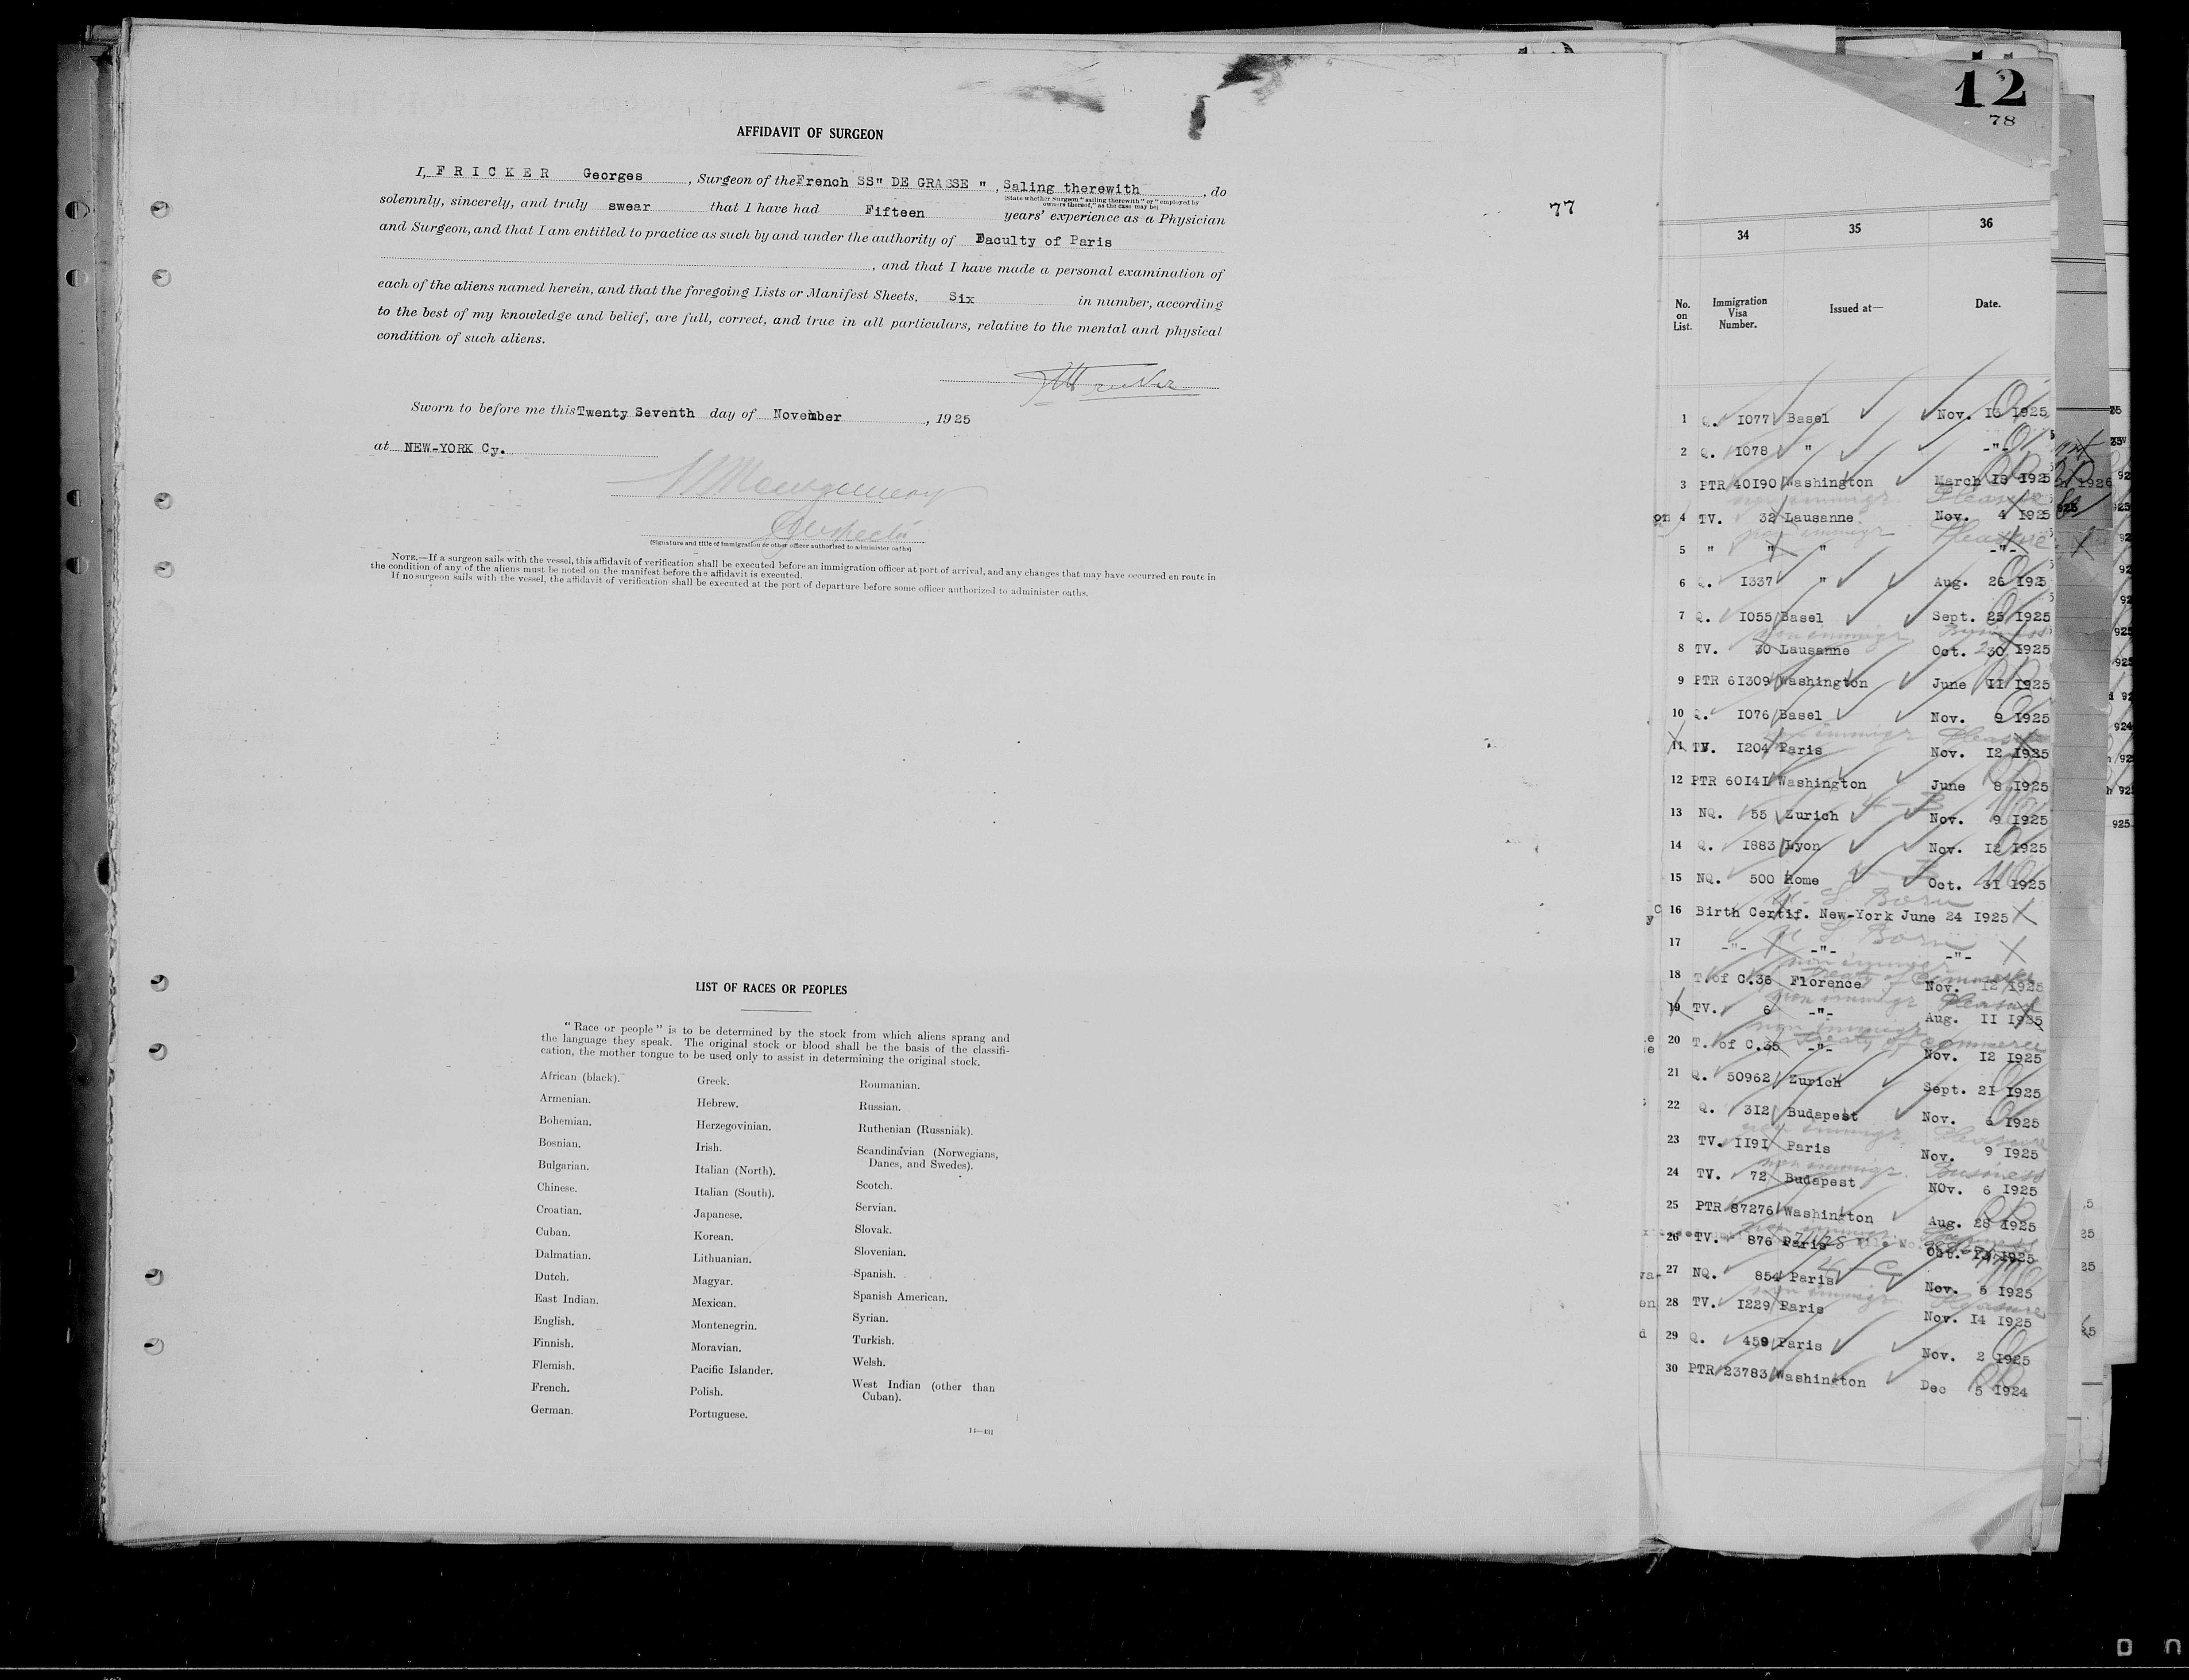 AFFIDAVIT OF SURGEON
I, F R I C K E R Georges , Surgeon of the French SS" DE GRASSE " , Saling therewith , do
(State whether Surgeon "sailing therewith" or "employed by
owners thereof," as the case may be)
solemnly, sincerely, and truly swear that I have had Fifteen years' experience as a Physician
and Surgeon, and that I am entitled to practice as such by and under the authority of Faculty of Paris
, and that I have made a personal examination of
each of the aliens named herein, and that the foregoing Lists or Manifest Sheets, Six in number, according
to the best of my knowledge and belief, are full, correct, and true in all particulars, relative to the mental and physical
condition of such aliens.
Sworn to before me this Twenty Seventh day of November , 1925
at NEW-YORK Cy.
Montgomery
Inspector
(Signature and title of immigration or other officer authorized to administer oaths)
NOTE.—If a surgeon sails with the vessel, this affidavit of verification shall be executed before an immigration officer at port of arrival, and any changes that may have occurred en route in
the condition of any of the aliens must be noted on the manifest before the affidavit is executed.
If no surgeon sails with the vessel, the affidavit of verification shall be executed at the port of departure before some officer authorized to administer oaths.
77
LIST OF RACES OR PEOPLES
"Race or people" is to be determined by the stock from which aliens sprang and
the language they speak. The original stock or blood shall be the basis of the classifi-
cation, the mother tongue to be used only to assist in determining the original stock.
African (black).
Armenian.
Bohemian.
Bosnian.
Bulgarian.
Chinese.
Croatian.
Cuban.
Dalmatian.
Dutch.
East Indian.
English.
Finnish.
Flemish.
French.
German.
Greek.
Hebrew.
Herzegovinian.
Irish.
Italian (North).
Italian (South).
Japanese.
Korean.
Lithuanian.
Magyar.
Mexican.
Montenegrin.
Moravian.
Pacific Islander.
Polish.
Portuguese.
Roumanian.
Russian.
Ruthenian (Russniak).
Scandinavian (Norwegians,
Danes, and Swedes).
Scotch.
Servian.
Slovak.
Slovenian.
Spanish.
Spanish American.
Syrian.
Turkish.
Welsh.
West Indian (other than
Cuban).
14—431
12
78
34 35 36
No. on List. Immigration Visa Number. Issued at— Date.
1 Q. 1077 Basel Nov. 13 1925
2 Q. 1078 " -"-
3 PTR 40190 Washington March 13 1925
non immigr. Pleasure
4 TV. 32 Lausanne Nov. 4 1925
non immigr Pleasure
5 " " " -"-
6 Q. 1337 " Aug. 26 1925
7 Q. 1055 Basel Sept. 25 1925
non immigr. Business
8 TV. 30 Lausanne Oct. 30 1925
9 PTR 61309 Washington June 11 1925
10 Q. 1076 Basel Nov. 9 1925
non immigr Pleasure
11 TV. 1204 Paris Nov. 12 1925
12 PTR 60141 Washington June 8 1925
13 NQ. 55 Zurich Nov. 9 1925
14 Q. 1883 Lyon Nov. 12 1925
15 NQ. 500 Rome Oct. 31 1925
U. S. Born
16 Birth Certif. New-York June 24 1925
U S Born
17 -"- -"- -"-
non immigr
Treaty of Commerce
18 T. of C. 36 Florence Nov. 12 1925
non immigr Pleasure
19 TV. 6 -"- Aug. 11 1925
non immigr
Treaty of Commerce
20 T. of C. 35 -"- Nov. 12 1925
21 Q. 50962 Zurich Sept. 21 1925
22 Q. 312 Budapest Nov. 6 1925
non immigr. Pleasure
23 TV. 1191 Paris Nov. 9 1925
non immigr. Business
24 TV. 72 Budapest NOv. 6 1925
25 PTR 87276 Washington Aug. 28 1925
26 TV. 876 Paris Oct. 1925
27 NQ. 854 Paris Nov. 5 1925
non immigr. Pleasure
28 TV. 1229 Paris Nov. 14 1925
29 Q. 459 Paris Nov. 2 1925
30 PTR 23783 Washington Dec 5 1924